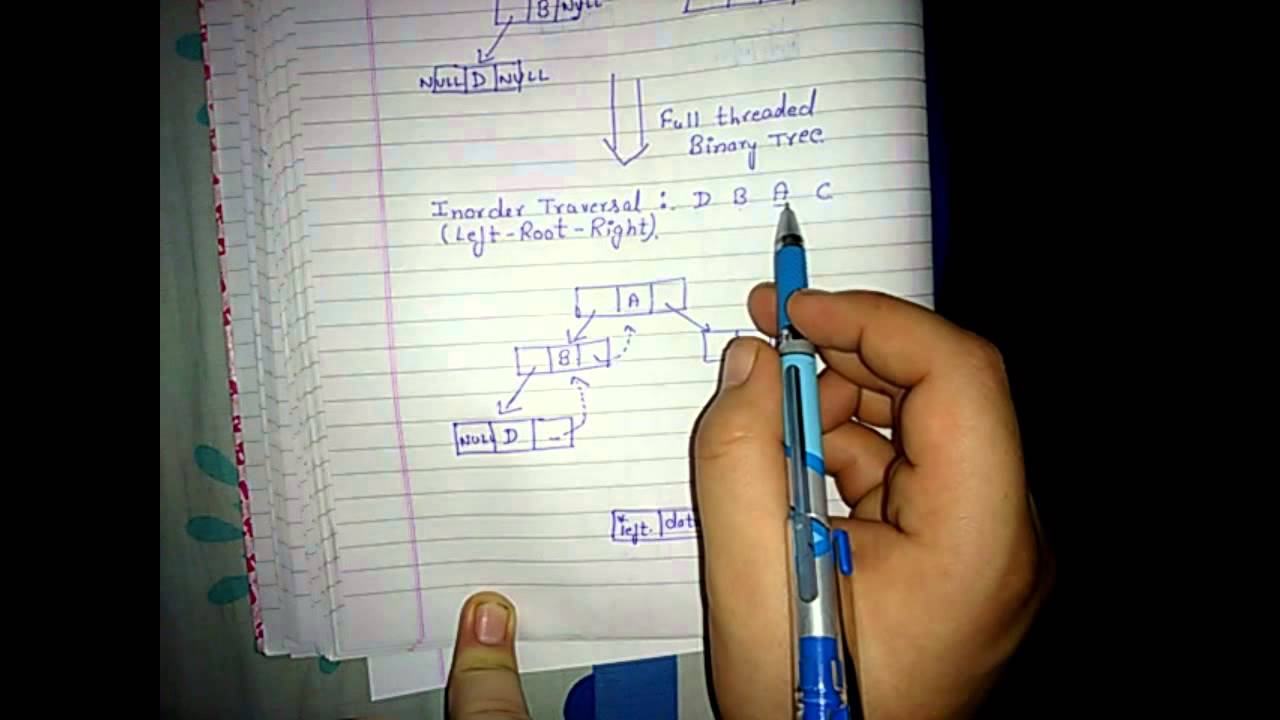 B NULL
NULL D NULL
Full threaded
Binary Tree.
Inorder Traversal :. D B A C
(Left-Root-Right).
A
B
NULL D
*left. dat